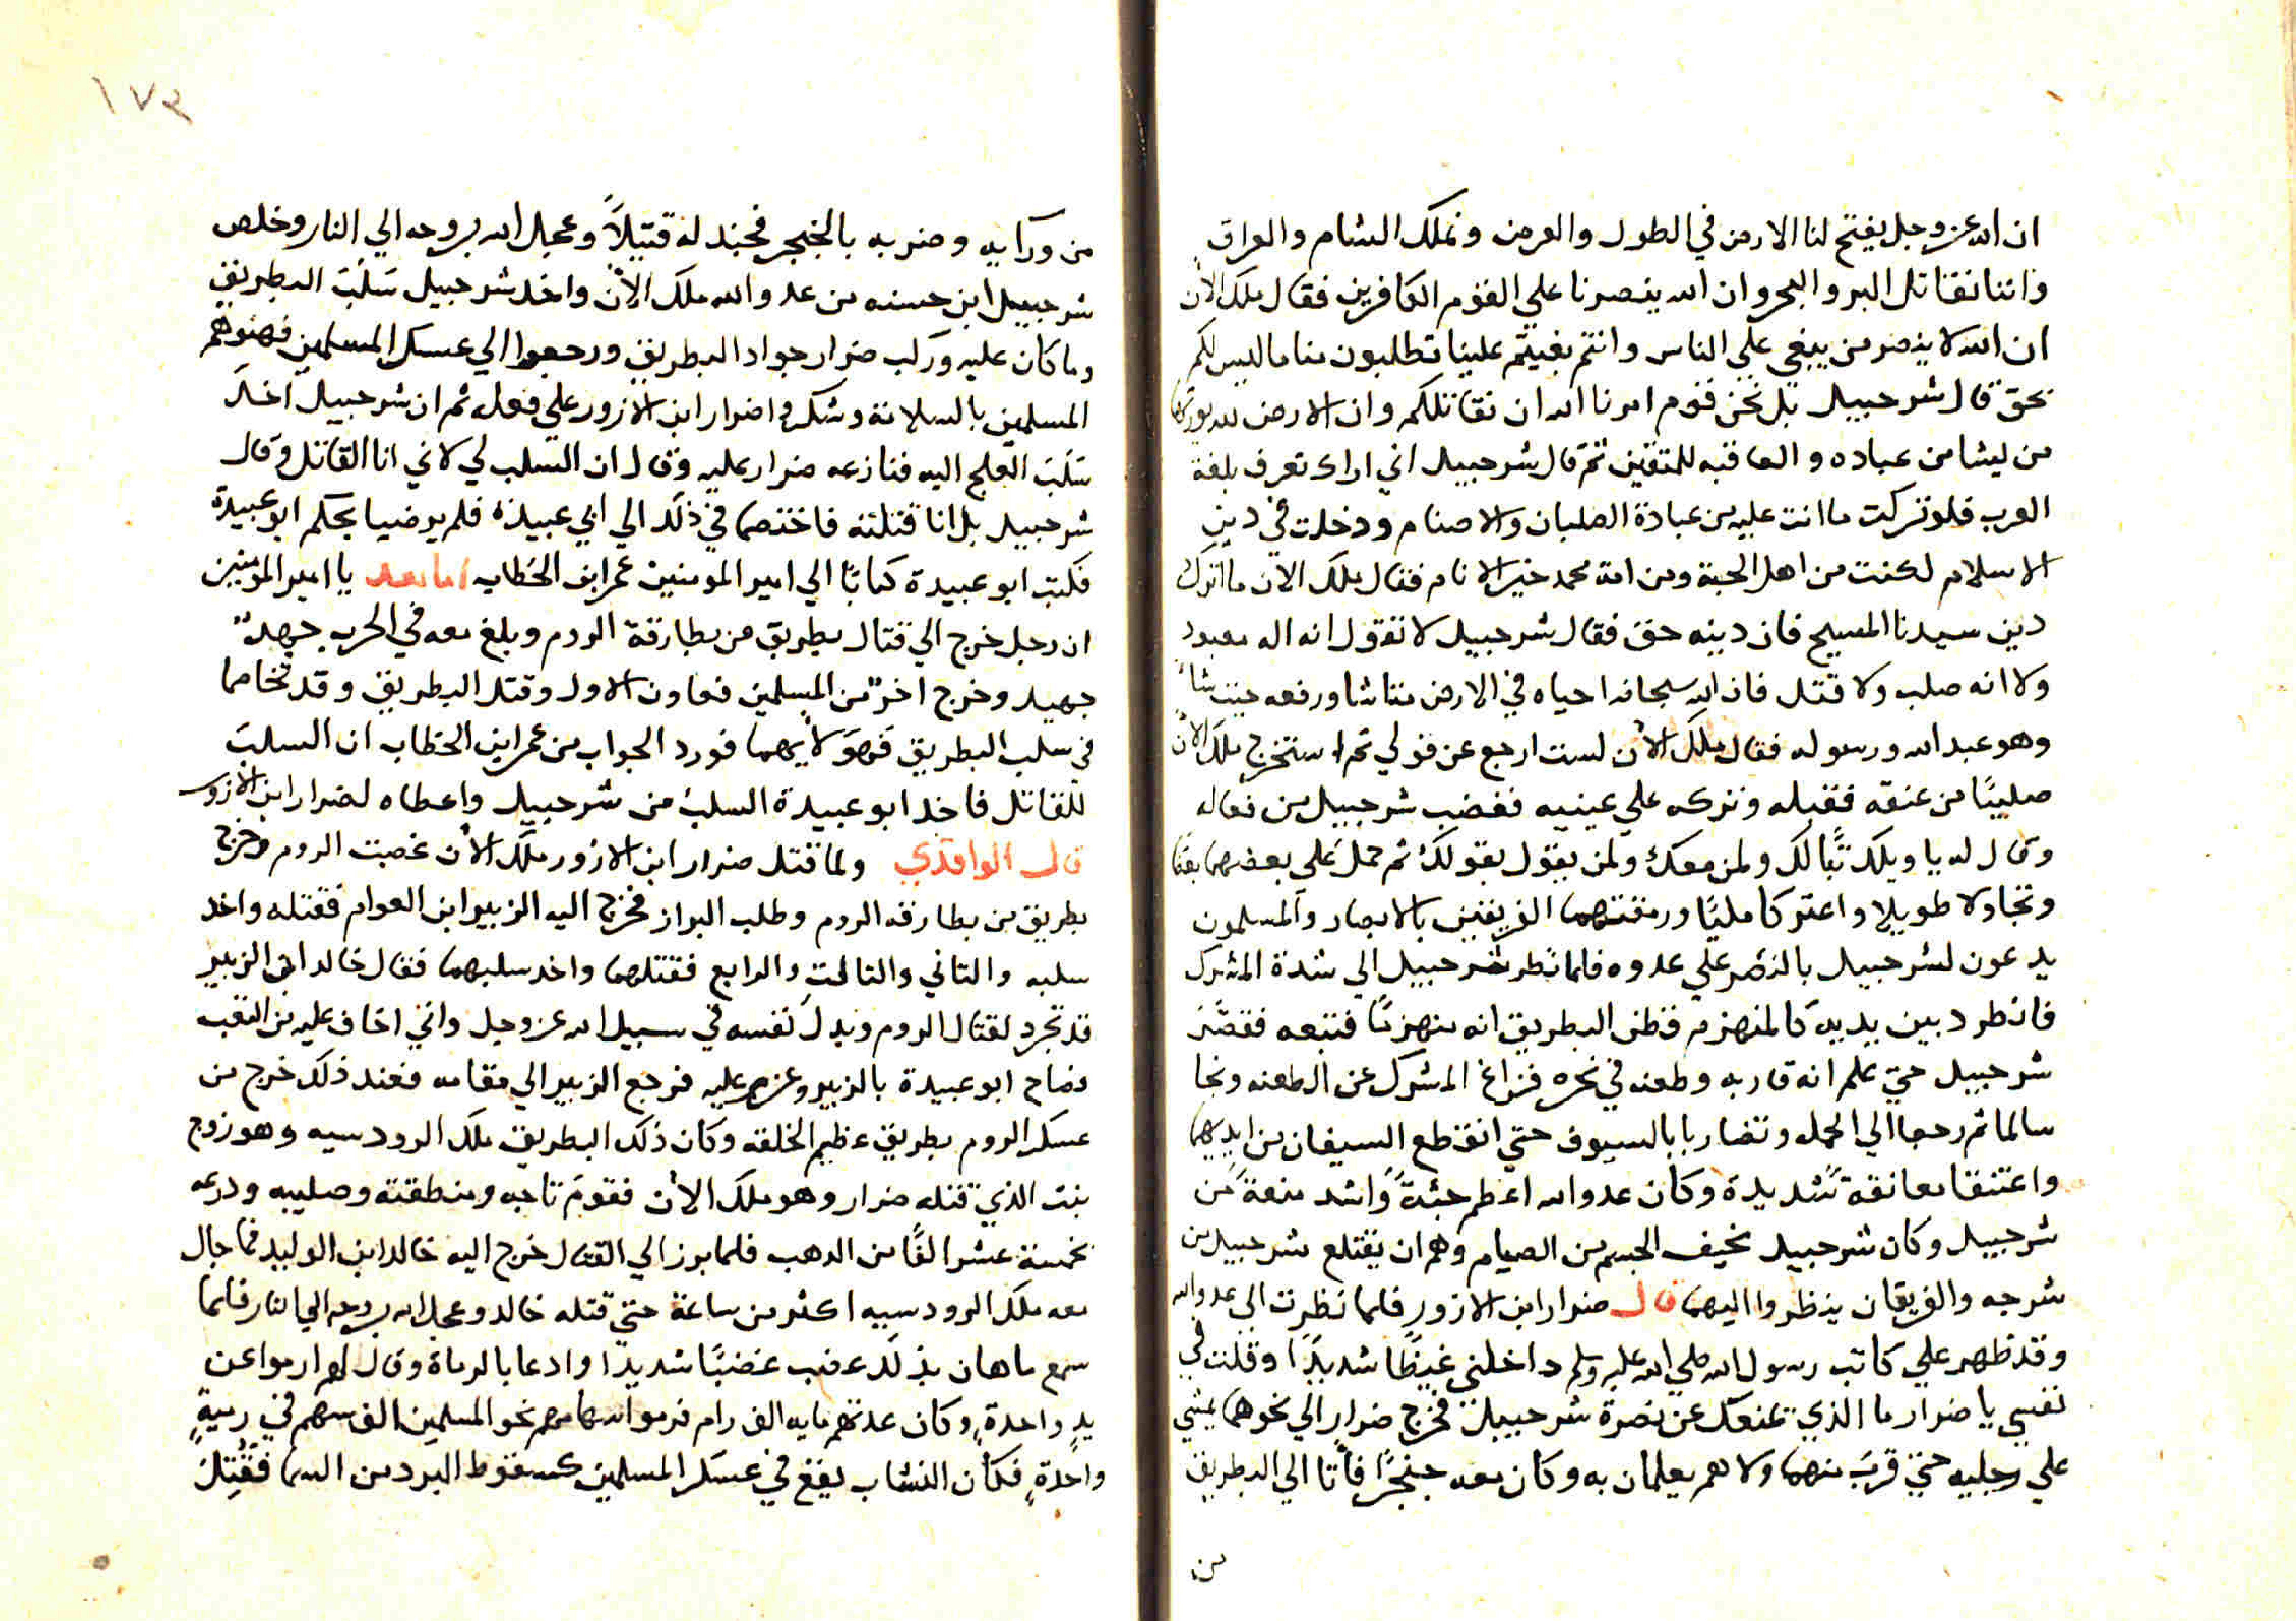 ان الله عز وجل يفتح لنا الارض في الطول والعرض ونملك الشام والعراق
واننا نقاتل البر والبحر وان الله ينصرنا علي القوم الكافرين فقال ملك الان
ان الله لا ينصر من يبغي علي الناس وانتم بغيتم علينا تطلبون منا ما ليس لكم
بحق قال شرحبيل بل نحن قوم امرنا الله ان نقاتلكم وان الارض لله يورثها
من يشا من عباده والعاقبه للمتقين ثم قال شرحبيل اني اراك تعرف بلغة
العرب فلو تركت ما انت عليه من عبادة الصلبان والاصنام ودخلت في دين
الاسلام لكنت من اهل الجنة ومن امة محمد خير الانام فقال ملك الان ما اترك
دين سيدنا المسيح فان دينه حق فقال شرحبيل لا تقول انه اله معبود
ولا انه صلب ولا قتل فان الله سبحانه احياه في الارض متاشا ورفعه حيت شاء
وهو عبد الله ورسوله فقال ملك الان لست ارجع عن قولي ثم استخرج ملك الان
صليبًا من عنقه فقبله وتركه علي عينيه فغضب شرحبيل من فعاله
وقال له يا ويلك تبًا لك ولمن معك ولمن يقول بقولك ثم حمل علي بعضهما بعضا
وتجاولا طويلا واعتركا مليًا ورمقتهما الفريقين بالابصار والمسلمون
يدعون لشرحبيل بالنصر علي عدوه فلما نظر شرحبيل الي شدة المشرك
فانطرد بين يديه كالمنهزم فظن البطريق انه منهزمًا فتبعه فقصّر
شرحبيل حتي علم انه قاربه وطعنه في نحره فزاغ المشرك عن الطعنه ونجا
سالما ثم رجعا الي الحمله وتضاربا بالسيوف حتي انقطع السيفان من ايديهما
واعتنقا معانقة شديدة وكان عدو الله اعظم جثةً واشد منعةً من
شرحبيل وكان شرحبيل نحيف الجسم من الصيام وهم ان يقتلع شرحبيل من
سرجه والفريقان ينظروا اليهما قال ضرار ابن الازور فلما نظرت الي عدو الله
وقد ظهر علي كاتب رسول الله صلي الله عليه وسلم داخلني غيظًا شديدًا وقلت في
نفسي يا ضرار ما الذي يمنعك عن نصرة شرحبيل فخرج ضرار الي نحوهما يمشي
علي رجليه حتي قرب منهما ولا هم يعلمان به وكان معه خنجرًا فأتا الي البطريق
من
١٧٣
من ورايه وضربه بالخنجر فجندله قتيلاً وعجل الله بروحه الي النار وخلص
شرحبيل ابن حسنه من عدو الله ملك الان واخد شرحبيل سلب البطريق
وما كان عليه وركب ضرار جواد البطريق ورجعوا الي عسكر المسلمين فهنوهم
المسلمين بالسلامة وشكروا ضرار ابن الازور علي فعله ثم ان شرحبيل اخذ
سلب العلج اليه فنازعه ضرار عليه وقال ان السلب لي لاني انا القاتل وقال
شرحبيل بل انا قتلته فاختصما في ذلك الي ابي عبيدة فلم يرضيا بحكم ابو عبيدة
فكتب ابو عبيدة كتابًا الي امير المومنين عمر ابن الخطاب اما بعد يا امير المومنين
ان رجل خرج الي قتال بطريق من بطارقة الروم وبلغ معه في الحرب جهدًا
جهيد وخرج اخر من المسلمين فعاون الاول وقتل البطريق وقد تخاصما
في سلب البطريق فهو لأيهما فورد الجواب من عمر ابن الخطاب ان السلب
للقاتل فاخد ابو عبيدة السلب من شرحبيل واعطاه لضرار ابن الازور
قال الواقدي ولما قتل ضرار ابن الازور ملك الان غضبت الروم وخرج
بطريق من بطارقه الروم وطلب البراز فخرج اليه الزبير ابن العوام فقتله واخد
سلبه والتاني والتالت والرابع فقتلهما واخد سلبهما فقال خالد ان الزبير
قد تجرد لقتال الروم وبدل نفسه في سبيل الله عز وجل واني اخاف عليه من التعب
فصاح ابو عبيدة بالزبير وعزم عليه فرجع الزبير الي مقامه فعند ذلك خرج من
عسكر الروم بطريق عظيم الخلقه وكان ذلك البطريق ملك الرودسيه وهو زوج
بنت الذي قتله ضرار وهو ملك الان فقوم تاجه ومنطقته وصليبه ودرعه
بخمسة عشر الفًا من الدهب فلما برز الي القتال خرج اليه خالد ابن الوليد فما جال
معه ملك الرودسيه اكثر من ساعة حتي قتله خالد وعجل الله بروحه الي النار فلما
سمع ماهان بذلك غضب غضبًا شديدًا وادعا بالرماة وقال لهم ارموا عن
يدٍ واحدةٍ وكان عدتهم مايه الف رام فرموا سهامهم نحو المسلمين الف سهم في رميةٍ
واحدةٍ فكان النشاب يقع في عسكر المسلمين كسقوط البرد من السما فقُتِل